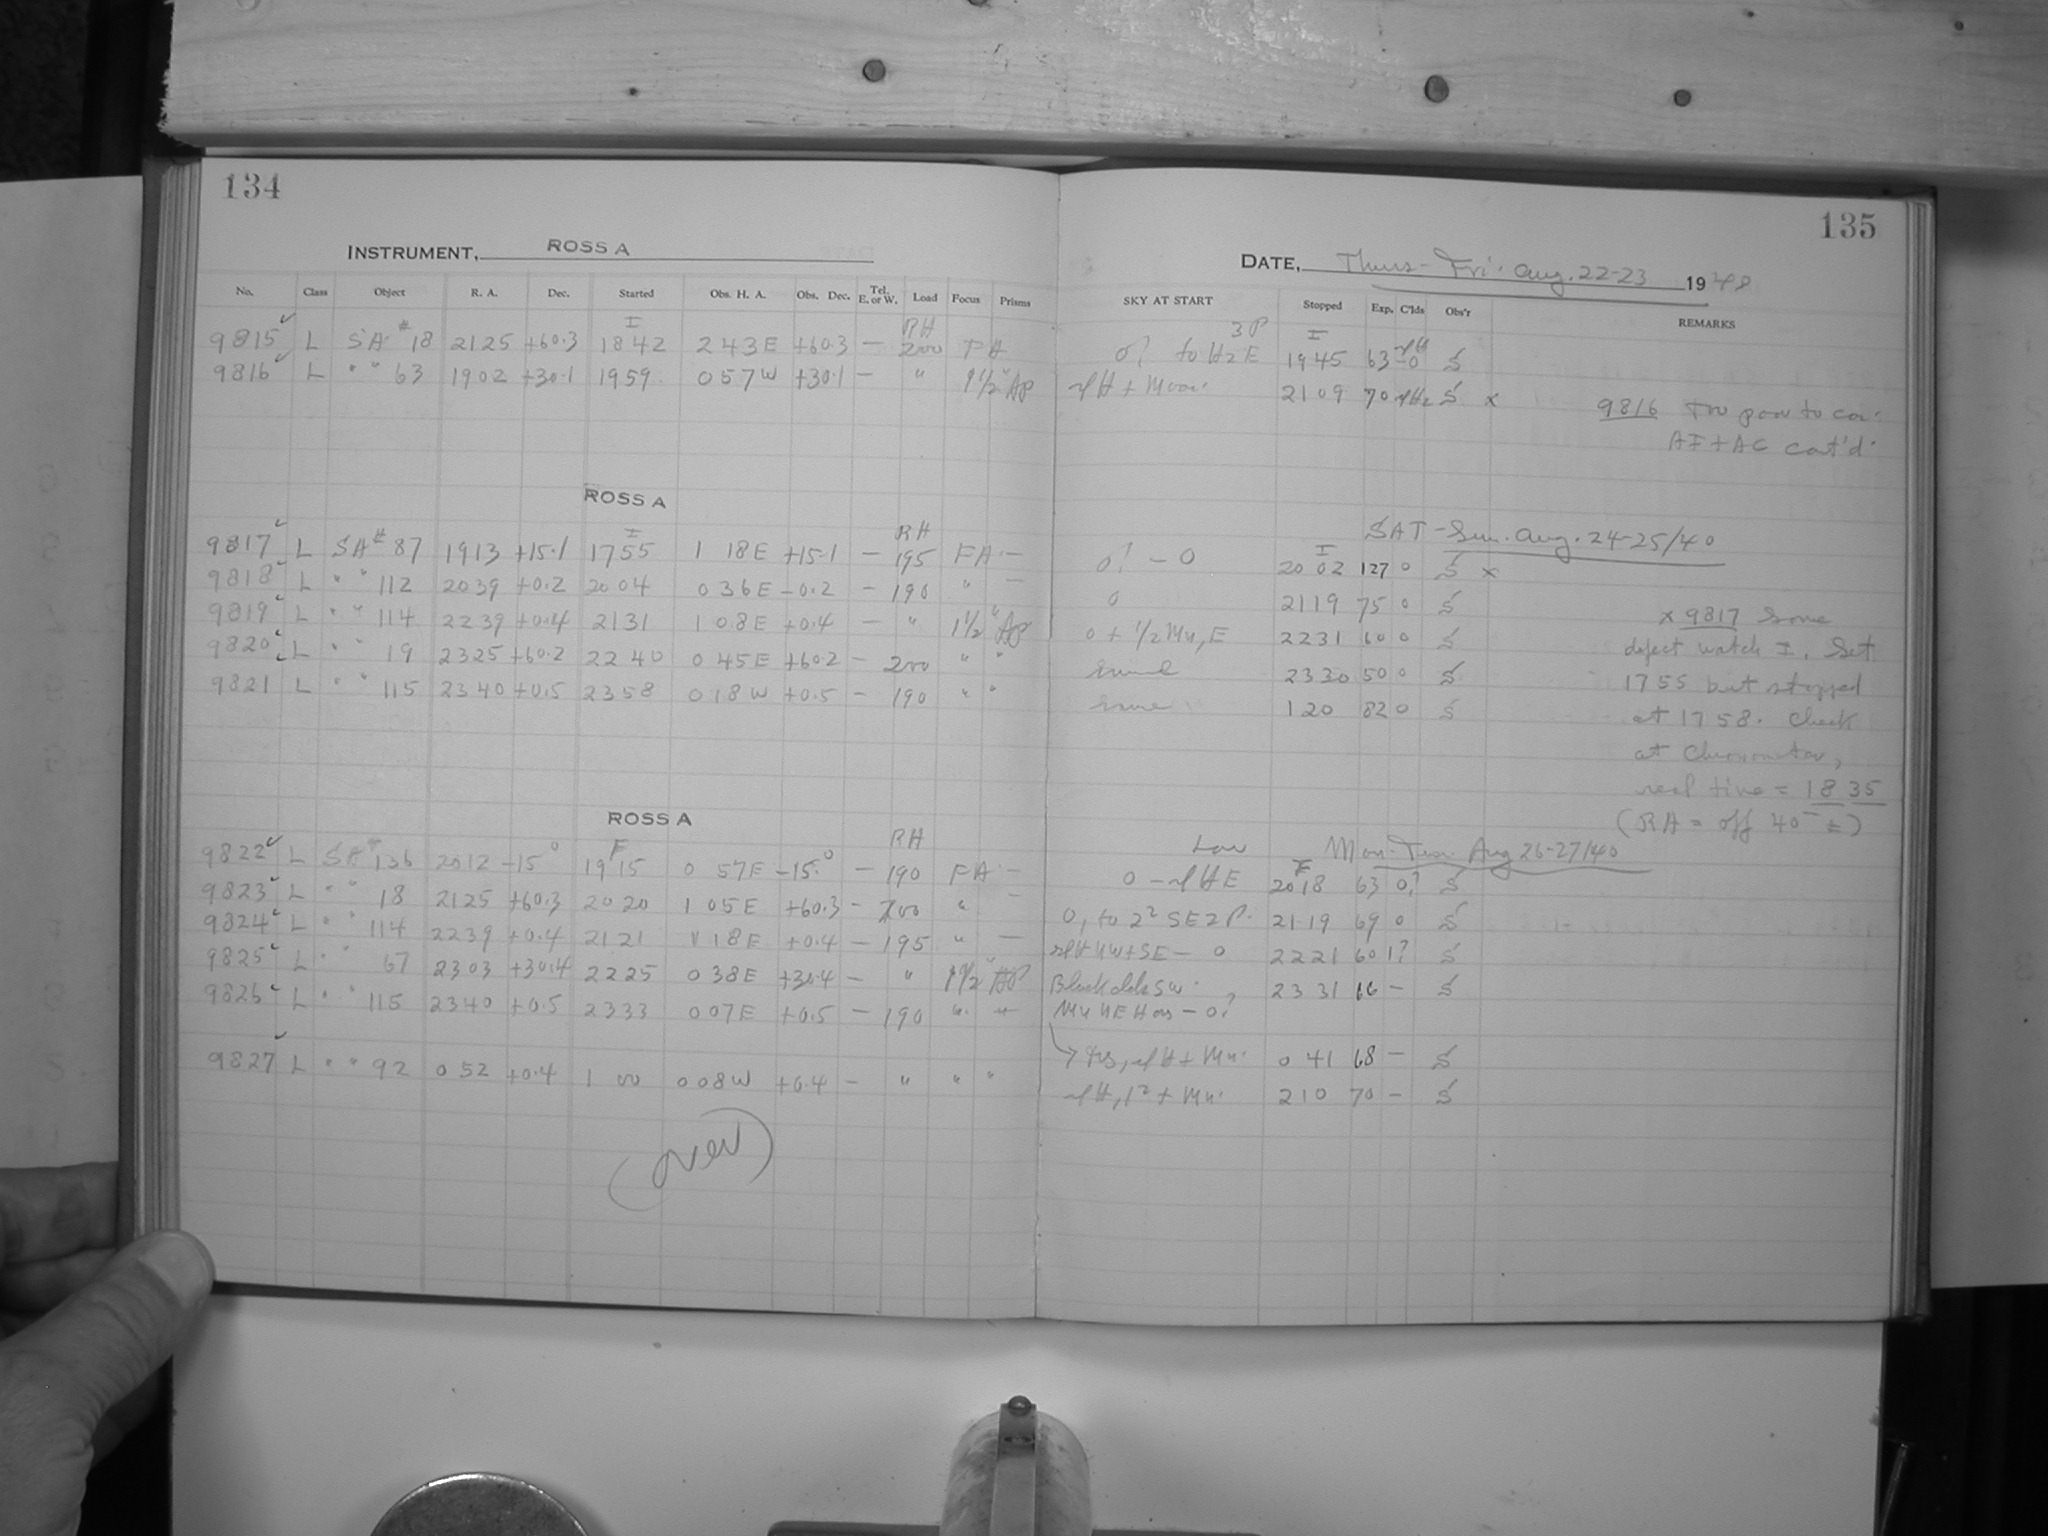 134
135
INSTRUMENT, ROSS A
DATE, Thurs - Fri. Aug. 22-23 1940
No. Class Object R. A. Dec. Started Obs. H. A. Obs. Dec. Tel. E. or W. Load Focus Prisms SKY AT START Stopped Exp. C'lds Obs'r REMARKS
I RH 3P I
9815 L SA # 18 2125 +60.3 1842 2 43E +60.3 — 200 FA 0? to H2 E 1945 63 S
9816 L " " 63 1902 +30.1 1959 0 57W +30.1 — " 1 1/2" AP H + Moon 2109 70 S x
9816 Too poor to
AI + AC cat'd.
ROSS A
SAT - Sun. Aug. 24-25/40
I RH I
9817 L SA # 87 1913 +15.1 1755 1 18E +15.1 — 195 FA — 0? - 0 2002 127 0 S x
9818 L " " 112 2039 +0.2 2004 0 36E -0.2 — 190 " — 0 2119 75 0 S
9819 L " " 114 2239 +0.4 2131 1 08E +0.4 — " 1 1/2" AP 0 + 1/2 Mn, E 2231 60 0 S
9820 L " " 19 2325 +60.2 2240 0 45E +60.2 — 200 " " same 2330 50 0 S
9821 L " " 115 2340 +0.5 2358 0 18W +0.5 — 190 " " same 1 20 82 0 S
x 9817 Some
defect watch I. Set
1755 but stopped
at 1758. Check
at Chronometer,
real time = 18 35
(RA = off 40 m ±)
ROSS A
Mon-Tues. Aug 26-27/40
F RH Low F
9822 L SA # 136 2012 -15° 1915 0 57E -15.° — 190 FA — 0 - H E 2018 63 0? S
9823 L " " 18 2125 +60.3 2020 1 05E +60.3 — 200 " — 0, to 2² SE 2P. 2119 69 0 S
9824 L " " 114 2239 +0.4 2121 1 18E +0.4 — 195 " — H NW + SE — 0 2221 60 1? S
9825 L " " 67 2303 +30.4 2225 0 38E +30.4 — " 1 1/2" AP Black clds SW. 2331 66 — S
9826 L " " 115 2340 +0.5 2333 0 07E +0.5 — 190 " " Mn NE Hor — 0?
H + Mn. 0 41 68 — S
9827 L " " 92 0 52 +0.4 1 00 0 08W +0.4 — " " " H, 1² + Mn. 2 10 70 — S
(over)